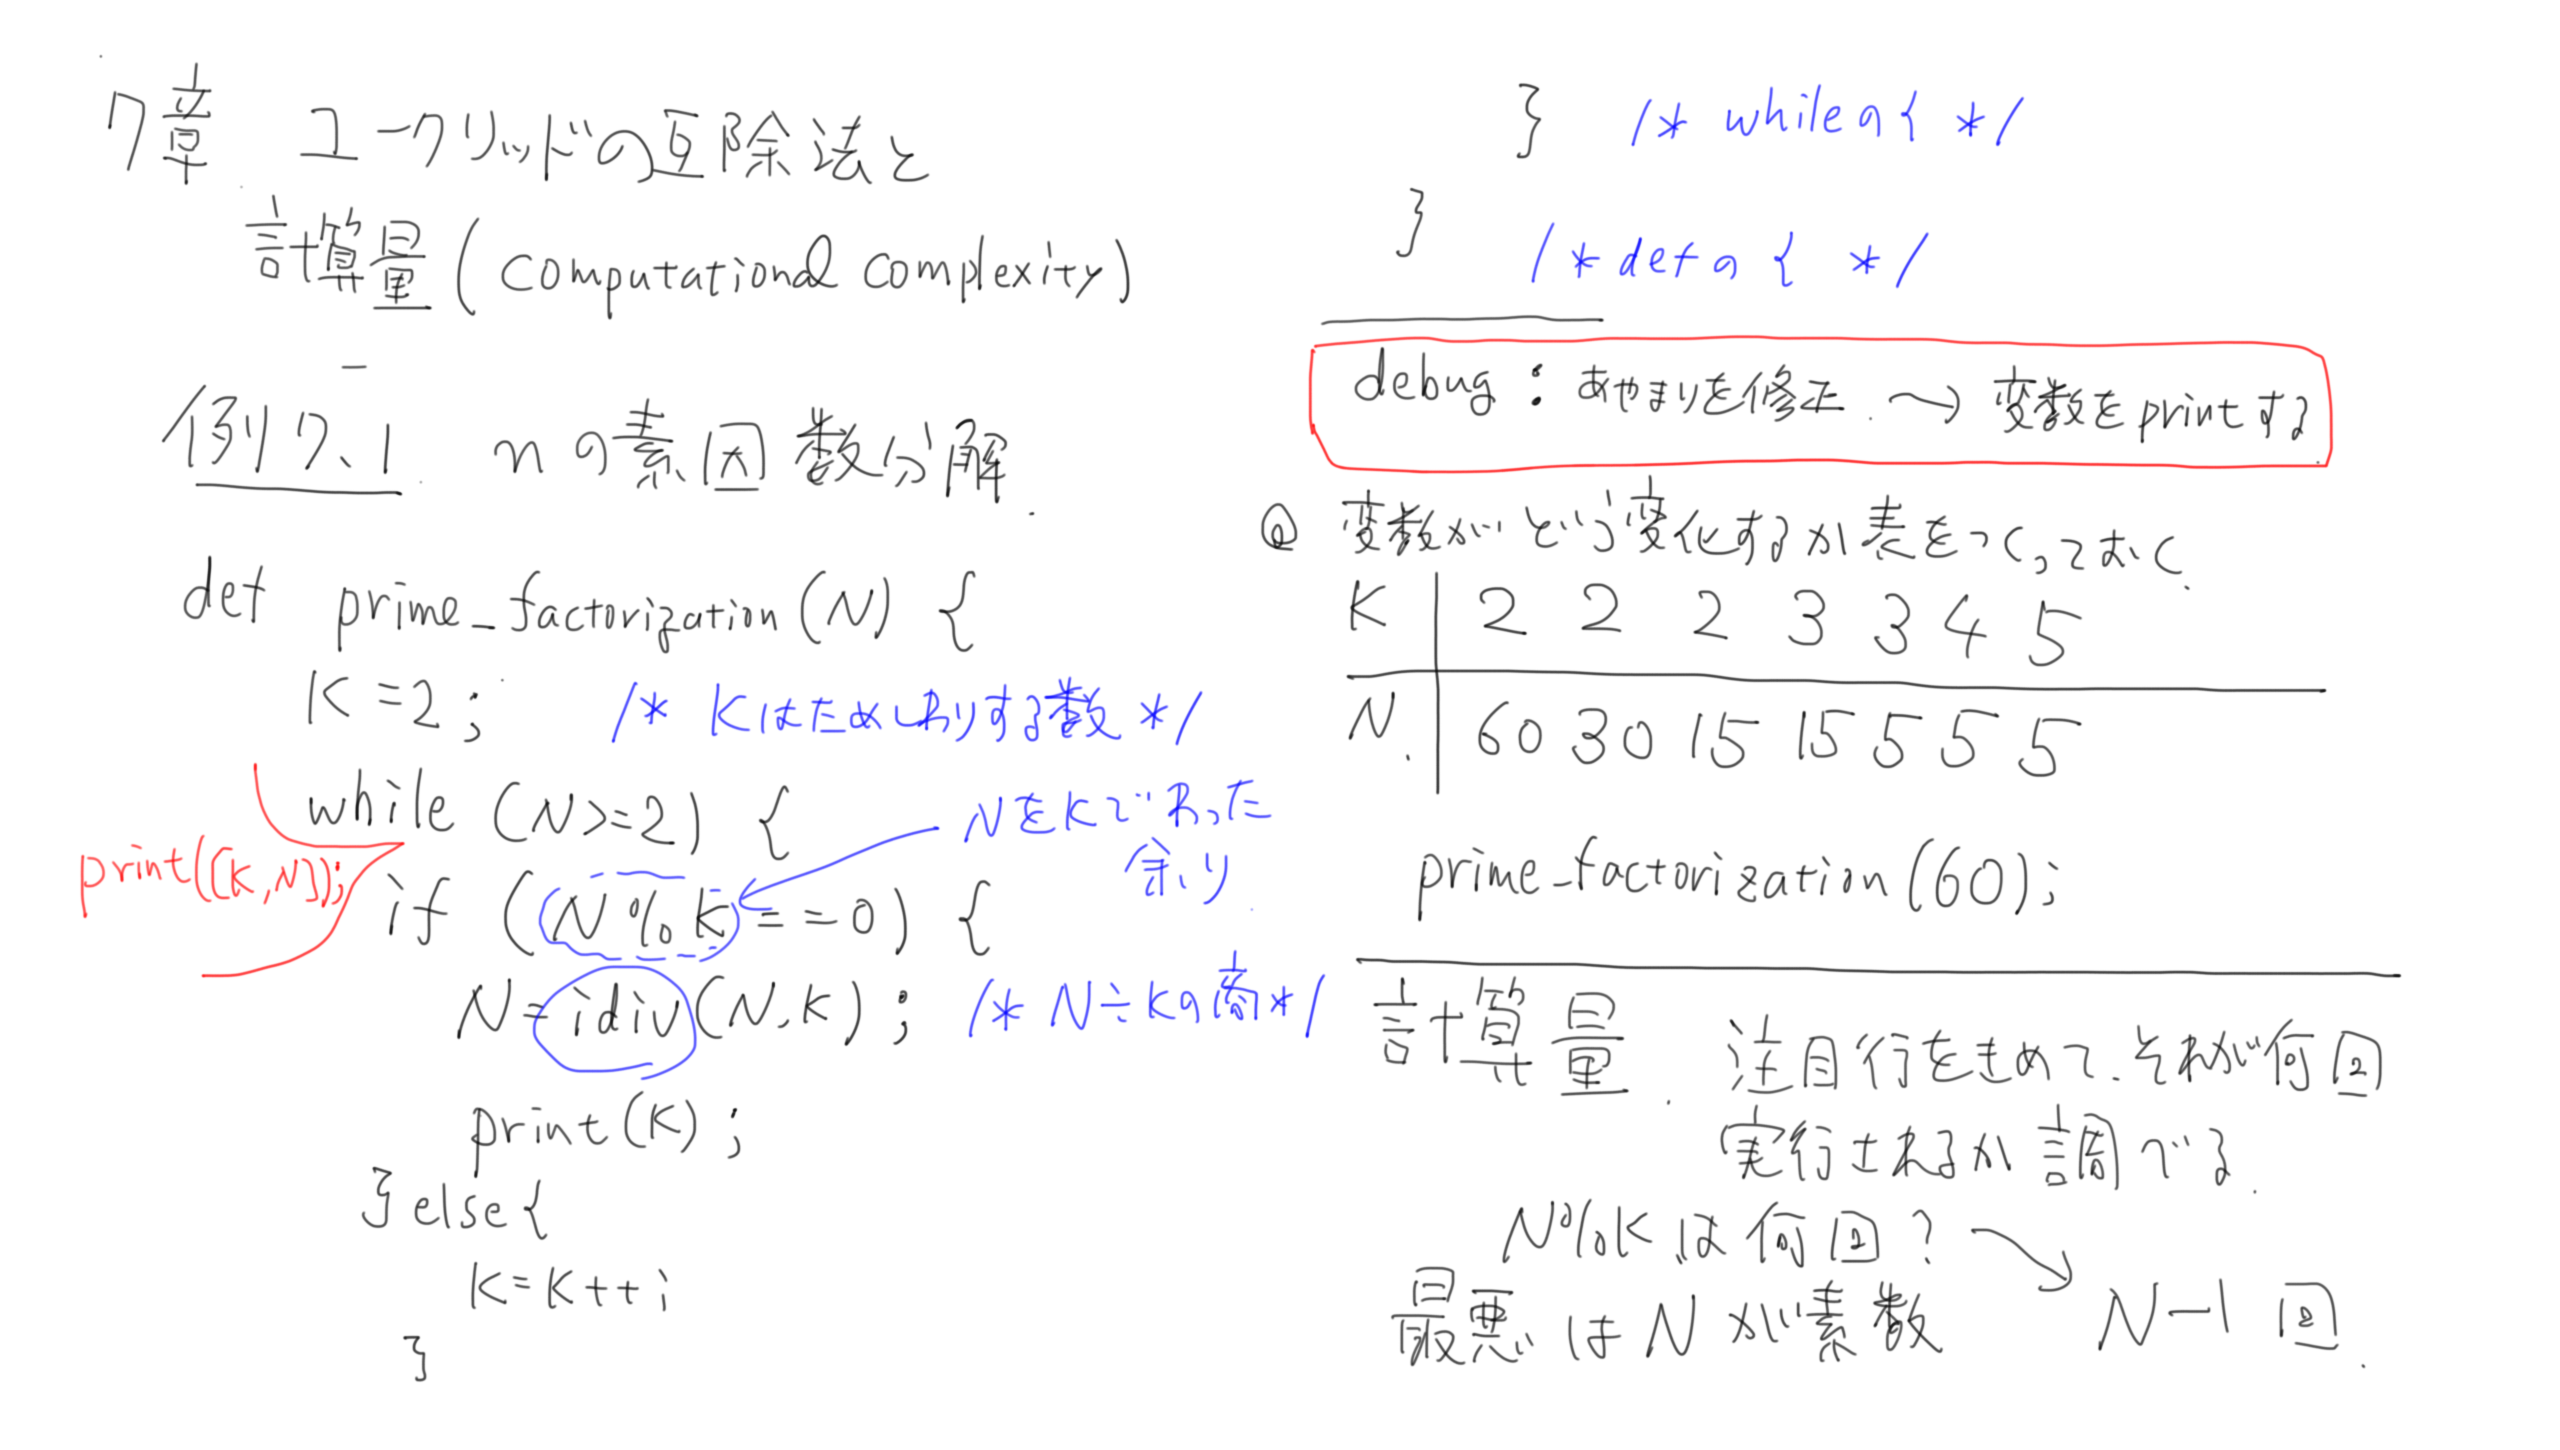 7章 ユークリッドの互除法と
計算量(computational complexity)
例り7.1 nの素因数分解.
def prime_factorization(N) {
K=2; /* Kはためしわりする数 */
while (N>=2) {
NをKでわった
余り
print([K,N]);
if (N%K==0) {
N=idiv(N,K); /* N÷Kの商*/
print(K);
}else{
K=K++;
}
} /* whileの{ */
} /*defの{ */
debug:あやまりを修正 → 変数をprintする.
◎ 変数がどう変化するか表をつくっておく.
K 2 2 2 3 3 4 5
N. 60 30 15 15 5 5 5
prime_factorization(60);
計算量. 注目行をきめて.それが何回
実行されるか調べる.
N%Kは何回?
最悪はNが素数 N-1回.